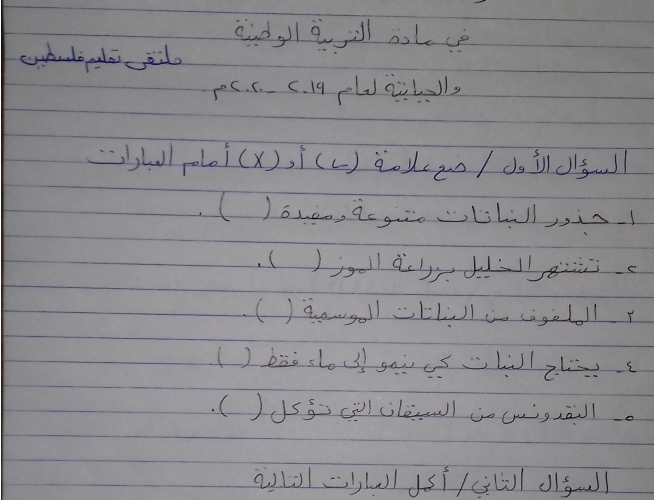 في مادة التربية الوطنية
ملتقى تعليم فلسطين
والحياتية لعام ٢٠١٩ - ٢٠٢٠م
السؤال الأول / ضع علامة (✓) أو (X) أمام العبارات
١- جذور النباتات متنوعة ومفيدة ( ).
٢- تشتهر الخليل بزراعة الموز ( ).
٣- الملفوف من النباتات الموسمية ( ).
٤- يحتاج النبات كي ينمو إلى ماء فقط ( )
٥- البقدونس من السيقان التي تؤكل ( ).
السؤال الثاني / أكمل العبارات التالية